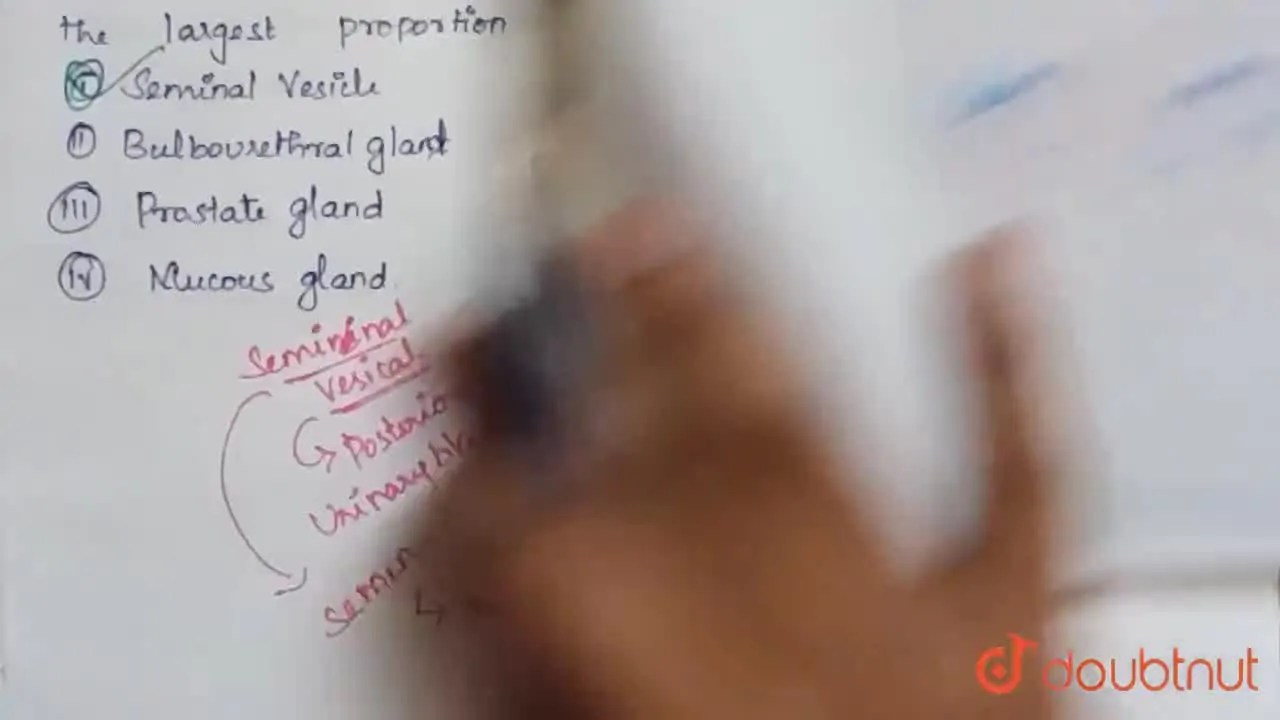 the largest proportion
Seminal Vesicle
II Bulbourethral gland
III Prastate gland
IV Mucous gland
Semininal
Vesical
Posterio
Urinary bl
Semin
doubtnut